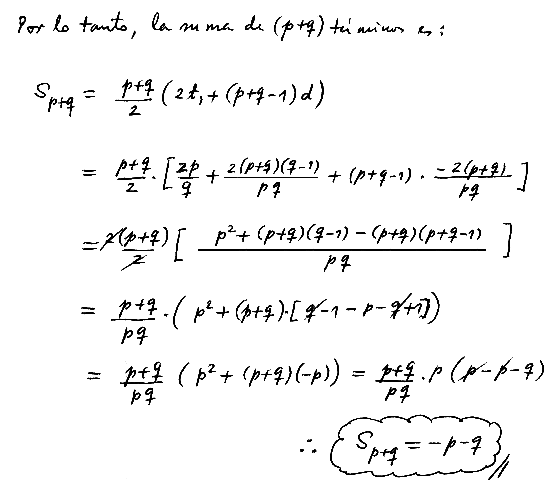 Por lo tanto, la suma de (p+q) términos es:
S_{p+q} = \frac{p+q}{2} (2t_1 + (p+q-1)d)
= \frac{p+q}{2} \cdot [ \frac{2p}{q} + \frac{2(p+q)(q-1)}{pq} + (p+q-1) \cdot \frac{-2(p+q)}{pq} ]
= \frac{2(p+q)}{2} [ \frac{p^2 + (p+q)(q-1) - (p+q)(p+q-1)}{pq} ]
= \frac{p+q}{pq} \cdot ( p^2 + (p+q) \cdot [q-1-p-q+1])
= \frac{p+q}{pq} (p^2 + (p+q)(-p)) = \frac{p+q}{pq} \cdot p (p-p-q)
∴ S_{p+q} = -p-q //